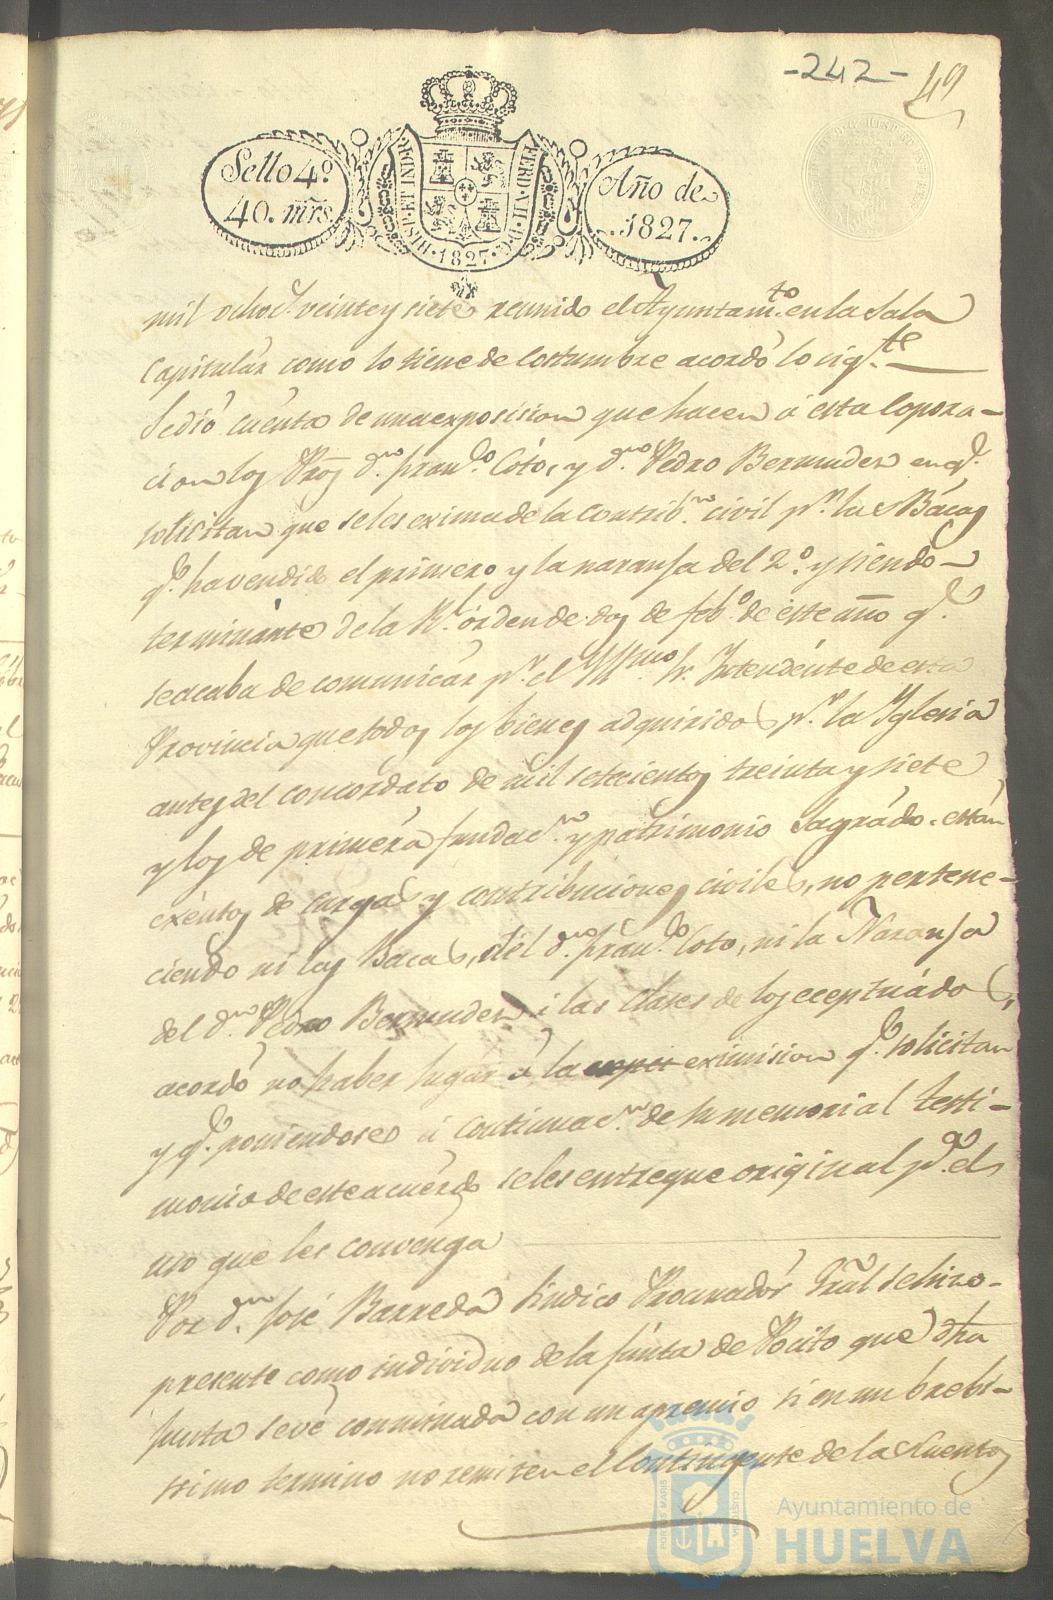 -242- 49
Sello 4º
40. mrs.
HISP. ET IND. R.
FERD. VII. D. G.
1827
Año de
1827.
mil ochoc.s veinte y siete reunido el Ayuntam.to en la Sala
Capitular como lo tiene de costumbre acordó lo sig.te
Se dió cuenta de una exposision que hacen á esta Copora-
cion los Pro̅s d.n fran.co Cóto, y d.n Pedro Bermudez en q.e
solisitan que seles exima de la contrib.n civil p.r las Bácas
q.e ha vendido el primero y la naransa del 2.º y siendo
terminánte de la R.l órden de dos de feb.o de éste año q.e
se acaba de comunicár p.r el Yll̅mo Sr. Intendénte de esta
Provincia que todos los bienes adquiridos p.r la Yglesia
antes del concordato de mil setecientos treinta y siete
y los de priméra fundac.n y patrimonio Sagrádo están
exéntos de cargas y contribuciones civiles, no pertene-
ciendo ni las Bacas, del d.n fran.co Coto, ni la Naransa
del d.n Pedro Bermudez á las clases de los eceptuádos,
acordó no haber lugar á la eximision q.e solicitan
y q.e poniendose á continuac.n de su memorial testi-
monio de este acuérdo seles entregue original p.a el
uso que les convenga
Por d.n José Barreda Sindico Procuradór Gral se hizo-
presente como individuo de la Junta de Pósito que dha
Junta se vé conminada con un apremio si en un brebi-
simo termino no remiten el Contingente de las Cuentas
PORTUS MARIS CUSTODIA
Ayuntamiento de
HUELVA